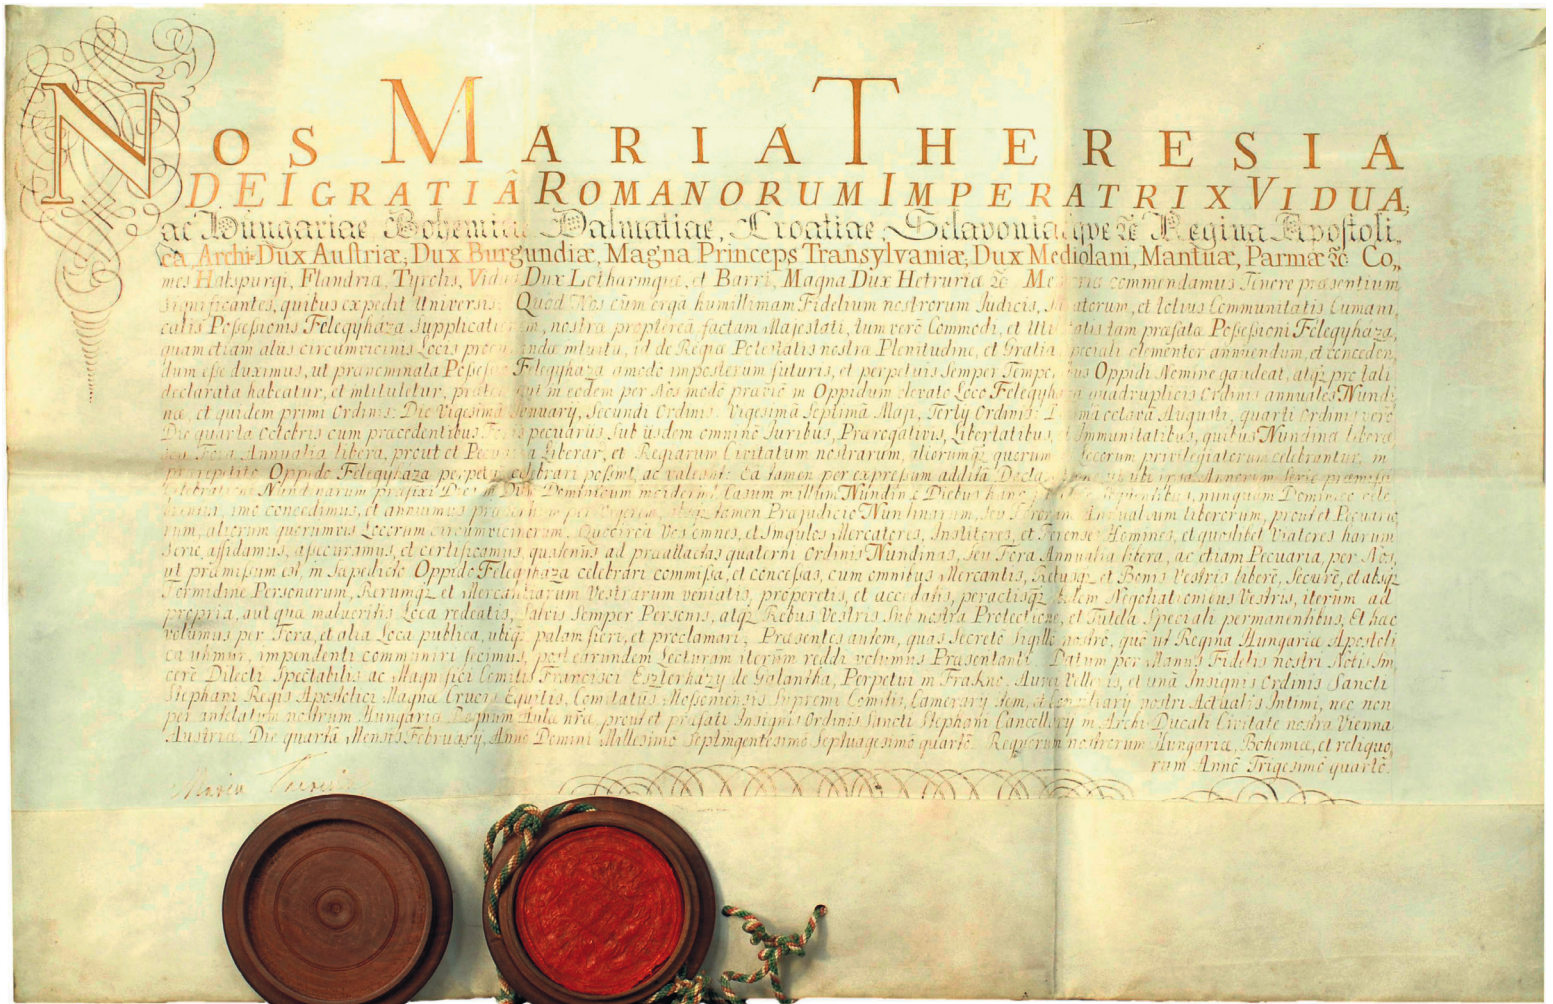 NOS MARIA THERESIA
DEI GRATIÂ ROMANORUM IMPERATRIX VIDUA,
ac Hungariae Bohemiae Dalmatiae, Croatiae, Sclavoniaeque &c Regina Apostoli,
ca, Archi-Dux Austriæ, Dux Burgundiæ, Magna Princeps Transylvaniæ, Dux Mediolani, Mantuæ, Parmæ &c Co,,
mes Habspurgi, Flandriæ, Tyrolis, Vidua Dux Lotharingiæ, et Barri, Magna Dux Hetruriæ &c Memoriæ commendamus Tenore præsentium
significantes, quibus expedit Universis: Quod Nos cùm ergà humillimam Fidelium nostrorum Judicis, Juratorum, et totius Communitatis Cumani,
calis Possessionis Felegyhaza supplicationem, nostræ proptereà factam Majestati, tum verò Commodi, et Utilitatis tam præfatæ Possessioni Felegyhaza,
quam etiam aliis circumvicinis Locis procurandæ intuitu, id de Regiæ Potestatis nostræ Plenitudine, et Gratia speciali clementer annuendum, et conceden,
dum esse duximus, ut prænominata Possessio Felegyhaza amodo imposterum futuris, et perpetuis semper Temporibus Oppidi Nomine gaudeat, atq; pro tali
declarata habeatur, et intituletur, in eodem per Nos modò præviò in Oppidum elevato Loco Felegyhaza quadruplicis Ordinis annuales Nundi,
næ, et quidem primi Ordinis: Die Vigesimâ January, Secundi Ordinis: Vigesimâ Septimâ Maji, Terty Ordinis: octava Augusti, quarti Ordinis verò
Die quarta celebris cum præcedentibus Foris pecuariis, sub iisdem omninò Juribus, Prærogativis, Libertatibus, et Immunitatibus, quibus Nundinæ liberæ
seu Fora Annualia libera, prout et Pecuaria Liberar, et Regiarum Civitatum nostrarum, aliorumq; quorum Locorum privilegiatorum celebrantur, in
prærepetito Oppido Felegyhaza perpetuò celebrari possint, ac valeant: Eâ tamen per expressum additâ Declaratione, ut ubi ipsa Annorum serie præmissa
celebratione Nundinarum præfixi Dies in Diem Dominicum inciderint, Casum in illum Nundinæ Diebus hunc sequentibus, nunquam Dominico cele,
imo concedimus, et annuimus præsentium per Vigorem, absq; tamen Præjudicio Nundinarum, seu Fororum Annualium liberorum, prout et Pecuario,
rum, aliorum quorumvis Locorum circumvicinorum. Quocirca Vos omnes, et singulos Mercatores, Institores, et Forenses Homines, et quoslibet Viatores harum
Serie, assidamus, assecuramus, et certificamus, quatenus ad præattactas quaterni Ordinis Nundinas, seu Fora Annualia libera, ac etiam Pecuaria, per Nos,
ut præmissum est, in sæpedicto Oppido Felegyhaza celebrari commissa, et concessas, cum omnibus Mercantiis, Rebusq; et Bonis Vestris liberè, securè, et absq;
Formidine Personarum, Rerumq; et Mercantiarum Vestrarum veniatis, properetis, et accedatis, peractisq; ibidem Negotiationibus Vestris, iterùm ad
propria, aut quæ malueritis Loca redeatis, salvis semper Personis, atq; Rebus Vestris sub nostra Protectione, et Tutela speciali permanentibus, Et hæc
volumus per Fora, et alia Loca publica, ubiq; palam fieri, et proclamari; Præsentes autem, quas Secretò Sigillò nostrò, quò ut Regina Hungariæ Apostoli,
ca utimur, impendenti communiri fecimus, post earundem Lecturam iterùm reddi volumus Præsentanti. Datum per Manus Fidelis nostri Nobis sin,
cerè Dilecti Spectabilis ac Magnifici Comitis Francisci Eszterhazy de Galantha, Perpetui in Frakno, Aurei Velleris, et unà Insignis Ordinis Sancti
Stephani Regis Apostolici Magnæ Crucis Equitis, Comitatus Mosoniensis Supremi Comitis, Camerary item, et Consiliary nostri Actualis Intimi, nec non
per antelatam nostram Hungaricam Aulam nr̃am prout et præfati Insignis Ordinis Sancti Stephani Cancellary in Archi-Ducali Civitate nostra Vienna
Austriæ, Die quartâ Mensis February, Annô Domini Millesimô Septingentesimô Septuagesimô quartô. Regnorum nostrorum Hungariæ, Bohemiæ, et reliquo,
rum Annô Trigesimô quartô.
Maria Theresia